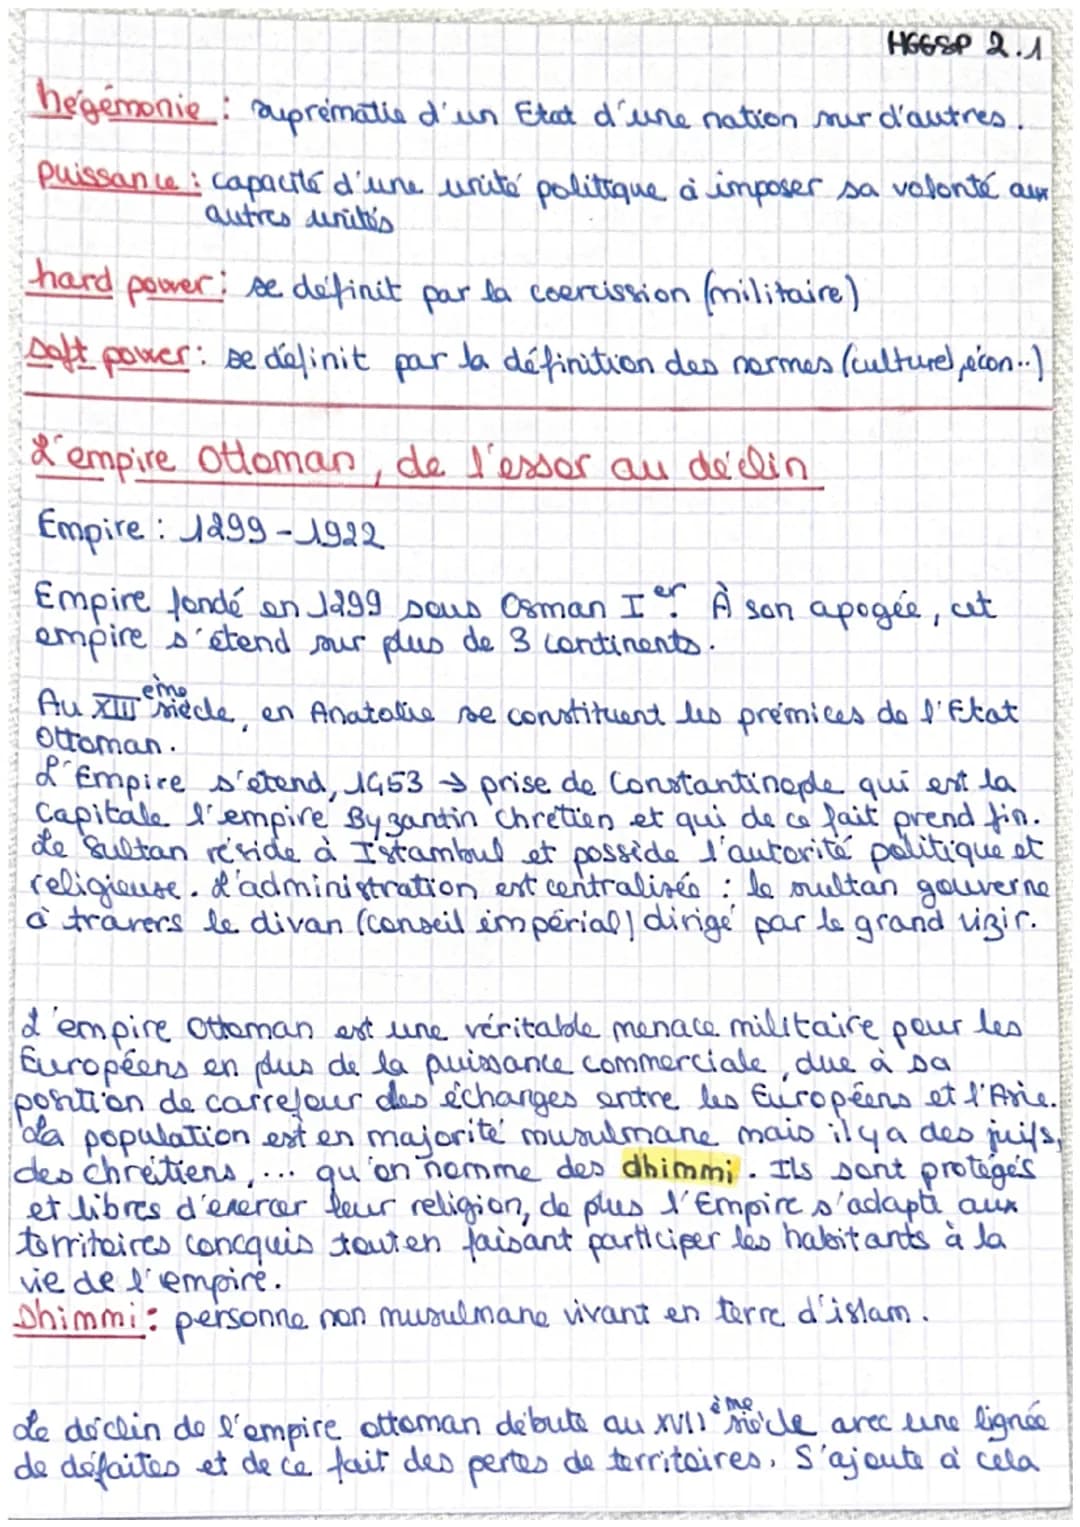 HGGSP 2.1
hégémonie : suprématie d'un Etat d'une nation sur d'autres.
puissance : capacité d'une unité politique à imposer sa volonté aux
autres unités
hard power : se définit par la coercission (militaire)
soft power : se définit par la définition des normes (culturel, écon..)
L'empire Ottoman, de l'essor au déclin
Empire : 1299-1922
Empire fondé en 1299 sous Osman Ier. À son apogée, cet
empire s'étend sur plus de 3 continents.
Au XIIIème siècle, en Anatolie se constituent les prémices de l'Etat
Ottoman.
L'Empire s'étend, 1453 → prise de Constantinople qui est la
Capitale l'empire Byzantin Chrétien et qui de ce fait prend fin.
Le Sultan réside à Istambul et possède l'autorité politique et
religieuse. L'administration est centralisée : le sultan gouverne
à travers le divan (conseil impérial) dirigé par le grand vizir.
L'empire Ottoman est une véritable menace militaire pour les
Européens en plus de la puissance commerciale, due à sa
position de carrefour des échanges entre les Européens et l'Asie.
La population est en majorité musulmane mais il y a des juifs,
des chrétiens, ... qu'on nomme des dhimmi. Ils sont protégés
et libres d'exercer leur religion, de plus l'Empire s'adapte aux
territoires concquis tout en faisant participer les habitants à la
vie de l'empire.
Dhimmi : personne non musulmane vivant en terre d'islam.
Le déclin de l'empire ottoman débute au XVIIème siècle avec une lignée
de défaites et de ce fait des pertes de territoires. S'ajoute à cela